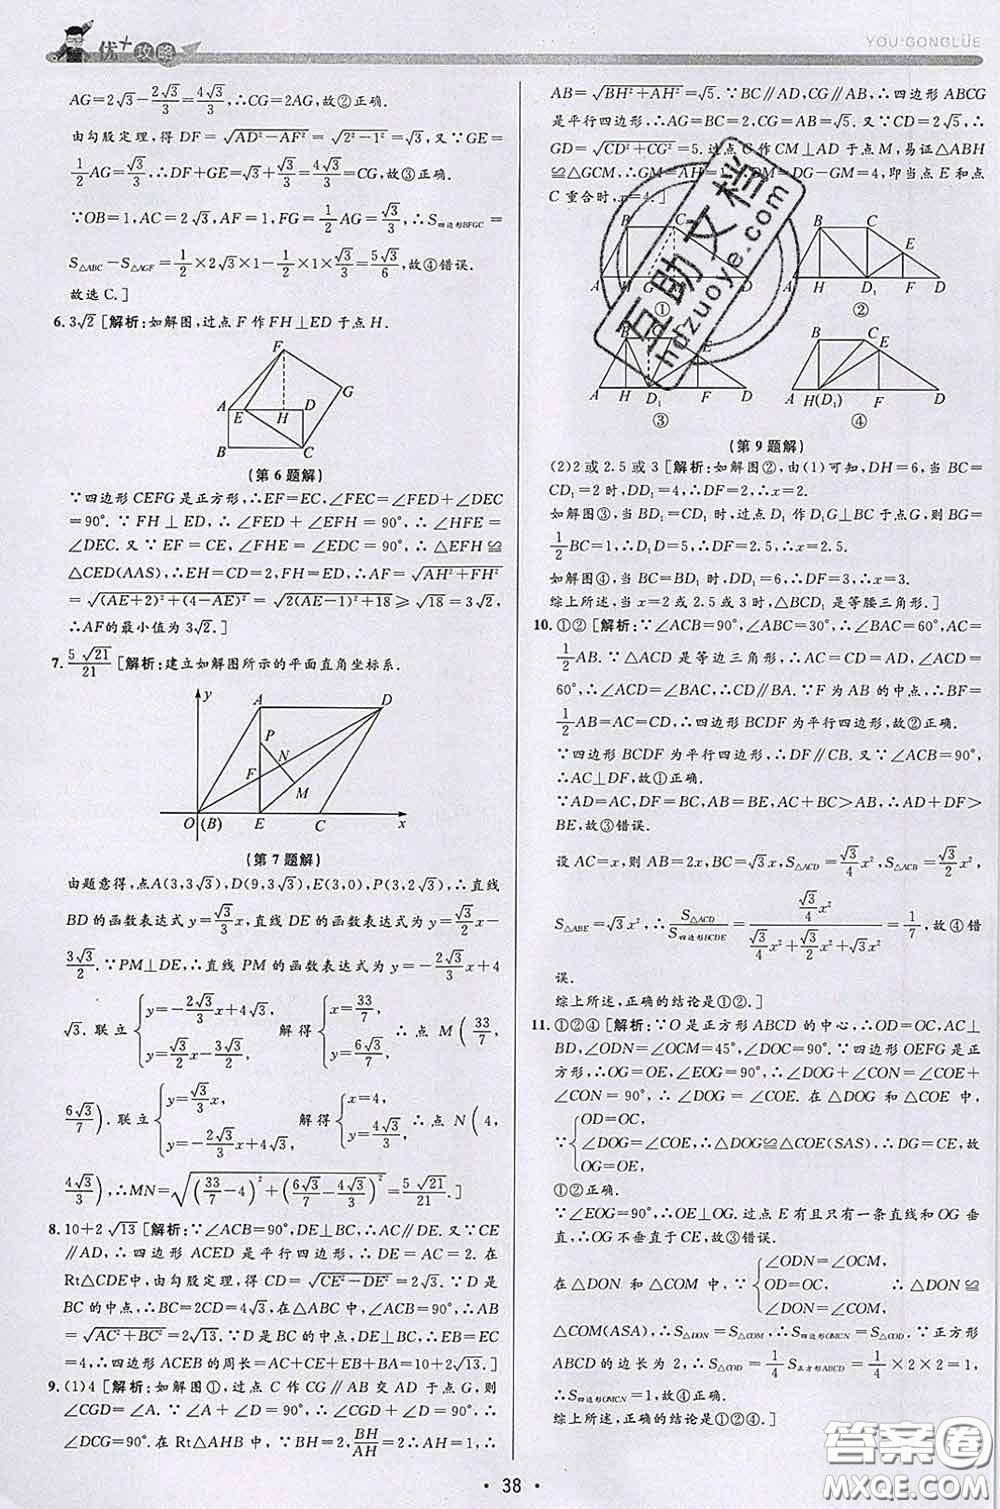 优+攻略
YOU·GONGLÜE
AG=2√3-2√3/3=4√3/3,∴CG=2AG,故②正确.
由勾股定理,得 DF=√(AD²-AF²)=√(2²-1²)=√3,又∵GE=
1/2AG=√3/3,∴DF+GE=√3+√3/3=4√3/3=CG,故③正确.
∵OB=1,AC=2√3,AF=1,FG=1/2AG=√3/3,∴S四边形BFGC=
S△ABC-S△AGF=1/2×2√3×1-1/2×1×√3/3=5√3/6,故④错误.
故选 C.]
6. 3√2 [解析:如解图,过点 F 作 FH⊥ED 于点 H.
F
G
A E H D
B C
(第 6 题解)
∵四边形 CEFG 是正方形,∴EF=EC,∠FEC=∠FED+∠DEC
=90°.∵FH⊥ED,∴∠FED+∠EFH=90°,∴∠HFE=
∠DEC.又∵EF=CE,∠FHE=∠EDC=90°,∴△EFH≌
△CED(AAS),∴EH=CD=2,FH=ED,∴AF=√(AH²+FH²)
=√((AE+2)²+(4-AE)²)=√(2(AE-1)²+18)≥√18=3√2,
∴AF的最小值为3√2.]
7. 5√21/21 [解析:建立如解图所示的平面直角坐标系.
y A D
P
N
F M
O (B) E C x
(第 7 题解)
由题意得,点A(3,3√3),D(9,3√3),E(3,0),P(3,2√3),∴直线
BD 的函数表达式为y=√3/3x,直线 DE 的函数表达式为y=√3/2x-
3√3/2.∵PM⊥DE,∴直线 PM 的函数表达式为y=-2√3/3x+4
√3.联立{y=-2√3/3x+4√3, y=√3/2x-3√3/2, 解得{x=33/7, y=6√3/7, ∴点 M(33/7,
6√3/7).联立{y=√3/3x, y=-2√3/3x+4√3, 解得{x=4, y=4√3/3, ∴点 N(4,
4√3/3),∴MN=√((33/7-4)²+(6√3/7-4√3/3)²)=5√21/21.]
8. 10+2√13 [解析:∵∠ACB=90°,DE⊥BC,∴AC∥DE.又∵CE
∥AD,∴四边形 ACED 是平行四边形,∴DE=AC=2.在
Rt△CDE中,由勾股定理,得 CD=√(CE²-DE²)=2√3.∵D 是
BC 的中点,∴BC=2CD=4√3,在△ABC 中,∠ACB=90°,AB=
√(AC²+BC²)=2√13.∵D 是 BC 的中点,DE⊥BC,∴EB=EC=
4,∴四边形 ACEB 的周长=AC+CE+EB+AB=10+2√13.]
9. (1)4 [解析:如解图①,过点 C 作 CG∥AB 交 AD 于点 G,则
∠CGD=∠A.∵∠A+∠D=90°,∴∠CGD+∠D=90°,∴
∠DCG=90°.在 Rt△AHB 中,∵BH=2,BH/AH=2,∴AH=1,∴
AB=√(BH²+AH²)=√5.∵BC∥AD,CG∥AB,∴四边形 ABCG
是平行四边形,∴AG=BC=2,CG=AB=√5.又∵CD=2√5,∴
GD=√(CD²+CG²)=5.过点 C 作 CM⊥AD 于点 M,易证△ABH
≌△GCM,∴GM=AH=1,∴DM=DG-GM=4,即当点 E 和点
C 重合时,x=4.]
B C
A H G D
①
B C
E
A H D₁ F D
②
E
A H D₁ F D
③
B C
E
A H(D₁) F D
④
(第 9 题解)
(2)2 或 2.5 或 3 [解析:如解图②,由(1)可知,DH=6,当
BC=CD₁=2 时,DD₁=4,∴DF=D₁F=2,∴x=2.
如解图③,当 BD₁=CD₁ 时,过点 D₁ 作 D₁G⊥BC 于点G,则 BG=
1/2BC=1,∴D₁D=5,∴DF=D₁F=2.5,∴x=2.5.
如解图④,当 BC=BD₁ 时,DD₁=6,∴DF=D₁F=3,∴x=3.
综上所述,当 x=2 或 2.5 或 3 时,△BCD₁ 是等腰三角形.]
10. ①② [解析:∵∠ACB=90°,∠ABC=30°,∴∠BAC=60°,AC=
1/2AB.∵△ACD 是等边三角形,∴∠ACD=60°,AC=CD=
60°,∴∠ACD=∠BAC,∴CD∥BA.∵F 为 AB 的中点,∴BF=
1/2AB=AC=CD,∴四边形 BCDF 为平行四边形,故②正确.
∵四边形 BCDF 为平行四边形,∴DF∥CB.又∵∠ACB=90°,
∴AC⊥DF,故①正确.
∵AD=AC,DF=BC,AB=BE,AC+BC>AB,∴AD+DF>
BE,故③错误.
设 AC=x,则 AB=2x,BC=√3x,S△ACD=√3/4x²,S△ACB=√3/2x²,
S△ABE=√3x²,∴S△ACD/S四边形BCDE=(√3/4x²)/(√3/4x²+√3/2x²+√3x²)=1/7,故④错
误.
综上所述,正确的结论是①②.]
11. ①②④ [解析:∵O 是正方形 ABCD 的中心,∴OD=OC,AC⊥
BD,∴∠ODN=∠OCM=45°,∠DOC=90°.∵四边形 OEFG 是正
方形,∴OG=OE,∠EOG=90°,∴∠DOG+∠COG=∠COE+
∠COG=90°,∴∠DOG=∠COE.在△DOG 和△COE 中,
∵{OD=OC, ∠DOG=∠COE, OG=OE, ∴△DOG≌△COE(SAS),∴DG=CE,故
①②正确.
∵∠EOG=90°,∴OE⊥OG.∵过点 E 有且只有一条直线和 OG 垂
直,∴OG 不垂直于CE,故③错误.
在△DON 和△COM 中,∵{∠ODN=∠OCM, OD=OC, ∠DON=∠COM, ∴△DON≌
△COM(ASA),∴S△DON=S△COM,∴S四边形OMCN=S△COD.∵正方形
ABCD 的边长为 2,∴S△COD=1/4S正方形ABCD=1/4×2×2=1,∴
S四边形OMCN=1,故④正确.
综上所述,正确的结论是①②④.]
• 38 •
互助文档
hdzuoye.com
答案圈
MXQE.COM